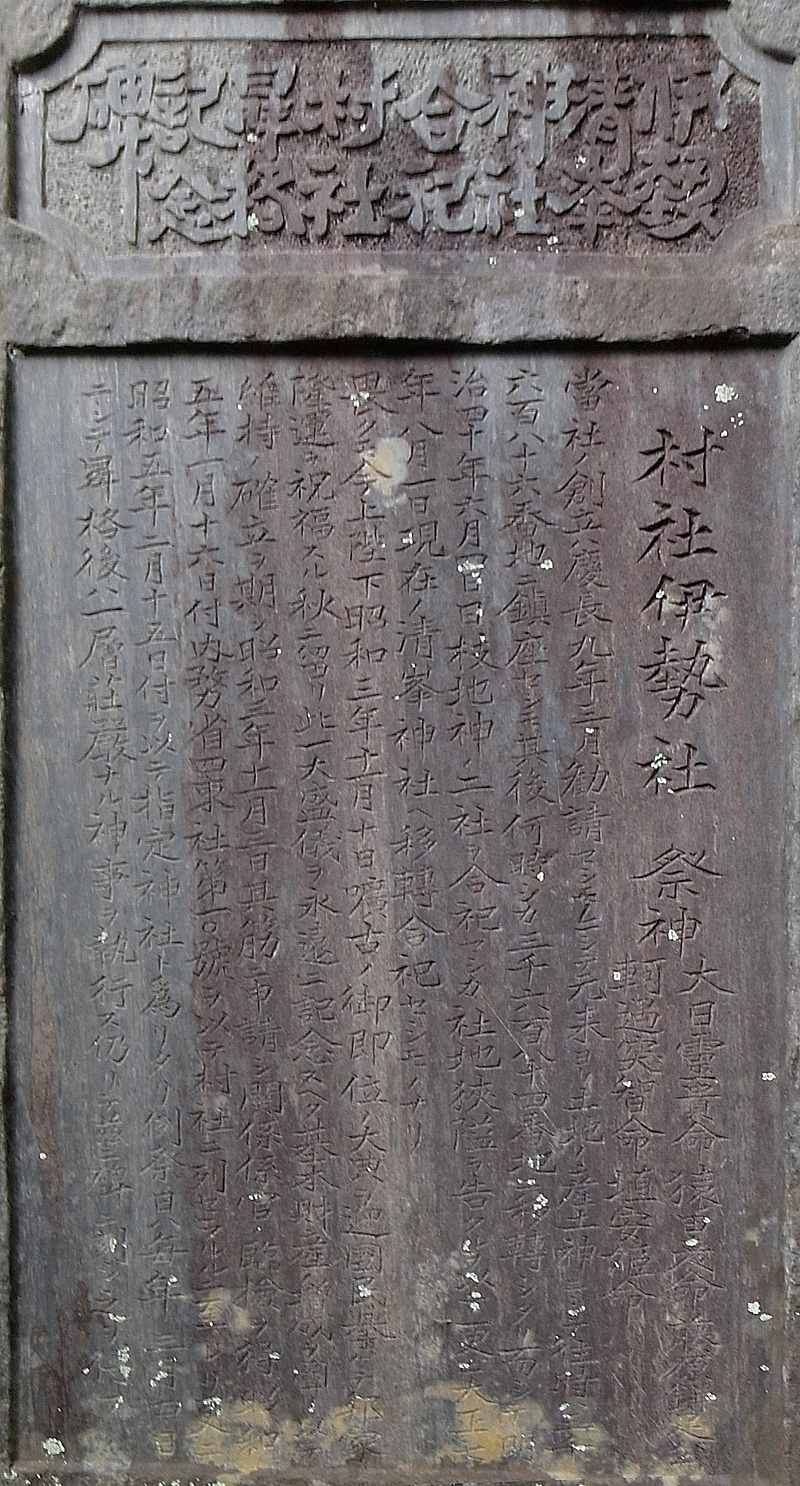 伊勢
清峯
神社
合祀
村社
昇格
記念
碑
村社伊勢社 祭神
大日霊貴命猿田彦命藤原鎌足
軻遇突智命埴安姫命
當社ノ創立ハ慶長九年三月勧請セシモノニシテ元来ヨリ土地ノ産土神ニシテ往時ハ三千
六百八十六番地ニ鎮座セシモ其後何時シカ三千六百八十四番地ニ移轉シタ 而シテ明
治四十年六月四日日枝地神ノ二社ヲ合祀セシカ社地狭隘ヲ告クルヲ以テ更ニ大正
年八月一日現在ノ清峯神社ヘ移轉合祀セシモノナリ
畏クモ今上陛下昭和三年十一月十日曠古ノ御即位ノ大典ヲ 國民挙ケテ
隆運ヲ祝福スル秋ニ當リ此一大盛儀ヲ永遠ニ記念スヘク基本財産
維持ノ確立ヲ期シ昭和三年十一月三日其筋ニ申請シ関係係官ノ臨検ヲ得 昭和
五年一月十六日付内務省 東社第一〇號ヲ以テ村社ニ列セラル
昭和五年二月十五日付ヲ以テ指定神社ト為リタリ例祭日ハ毎年 二月四日
ニシテ昇格後ハ一層荘厳ナル神事ヲ執行ス仍リテ茲ニ碑ニ刻シ之ヲ